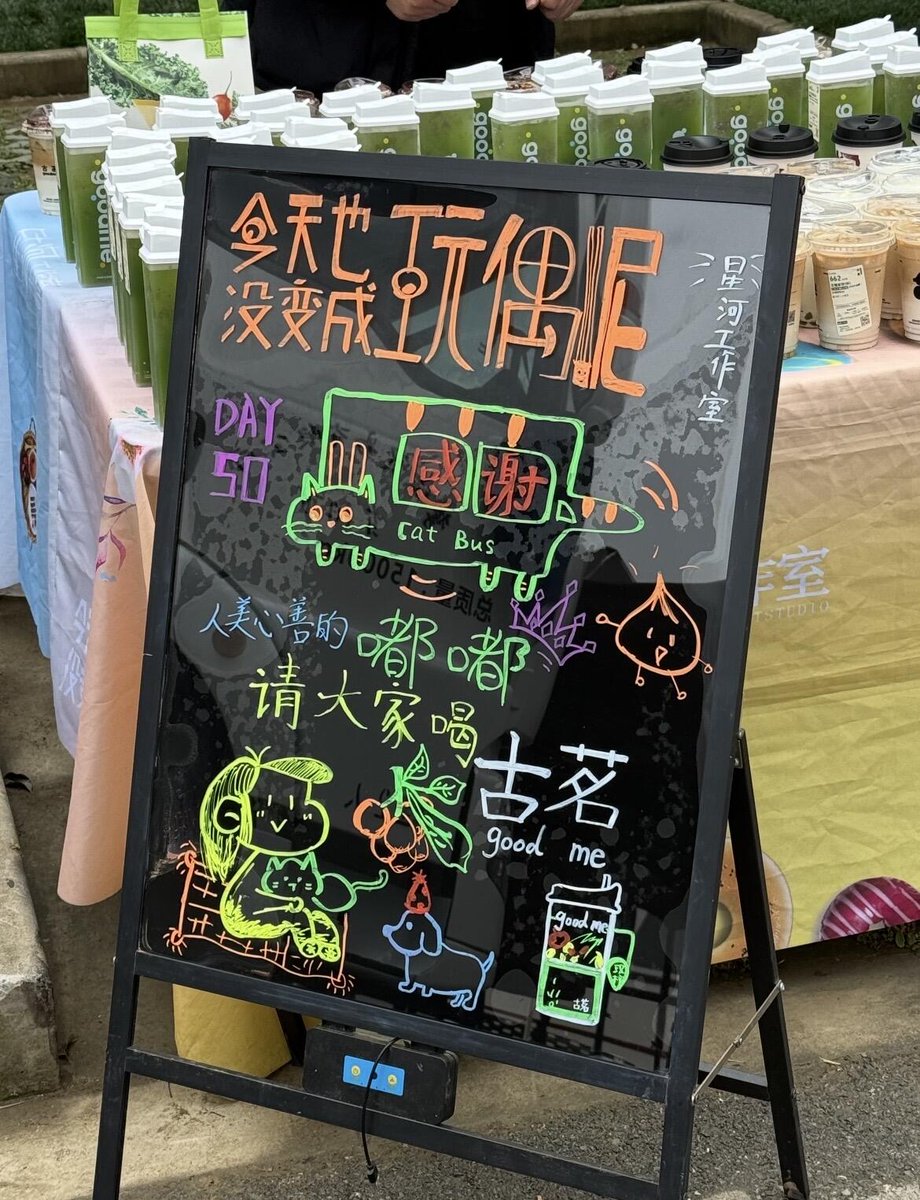 今天也
没变成
玩偶呢
星河工作室
DAY
50
感谢
Cat Bus
人美心善的
嘟嘟
请大家喝
古茗
good me
good me
古茗
goodme
good
good
good
good
good
662
作室